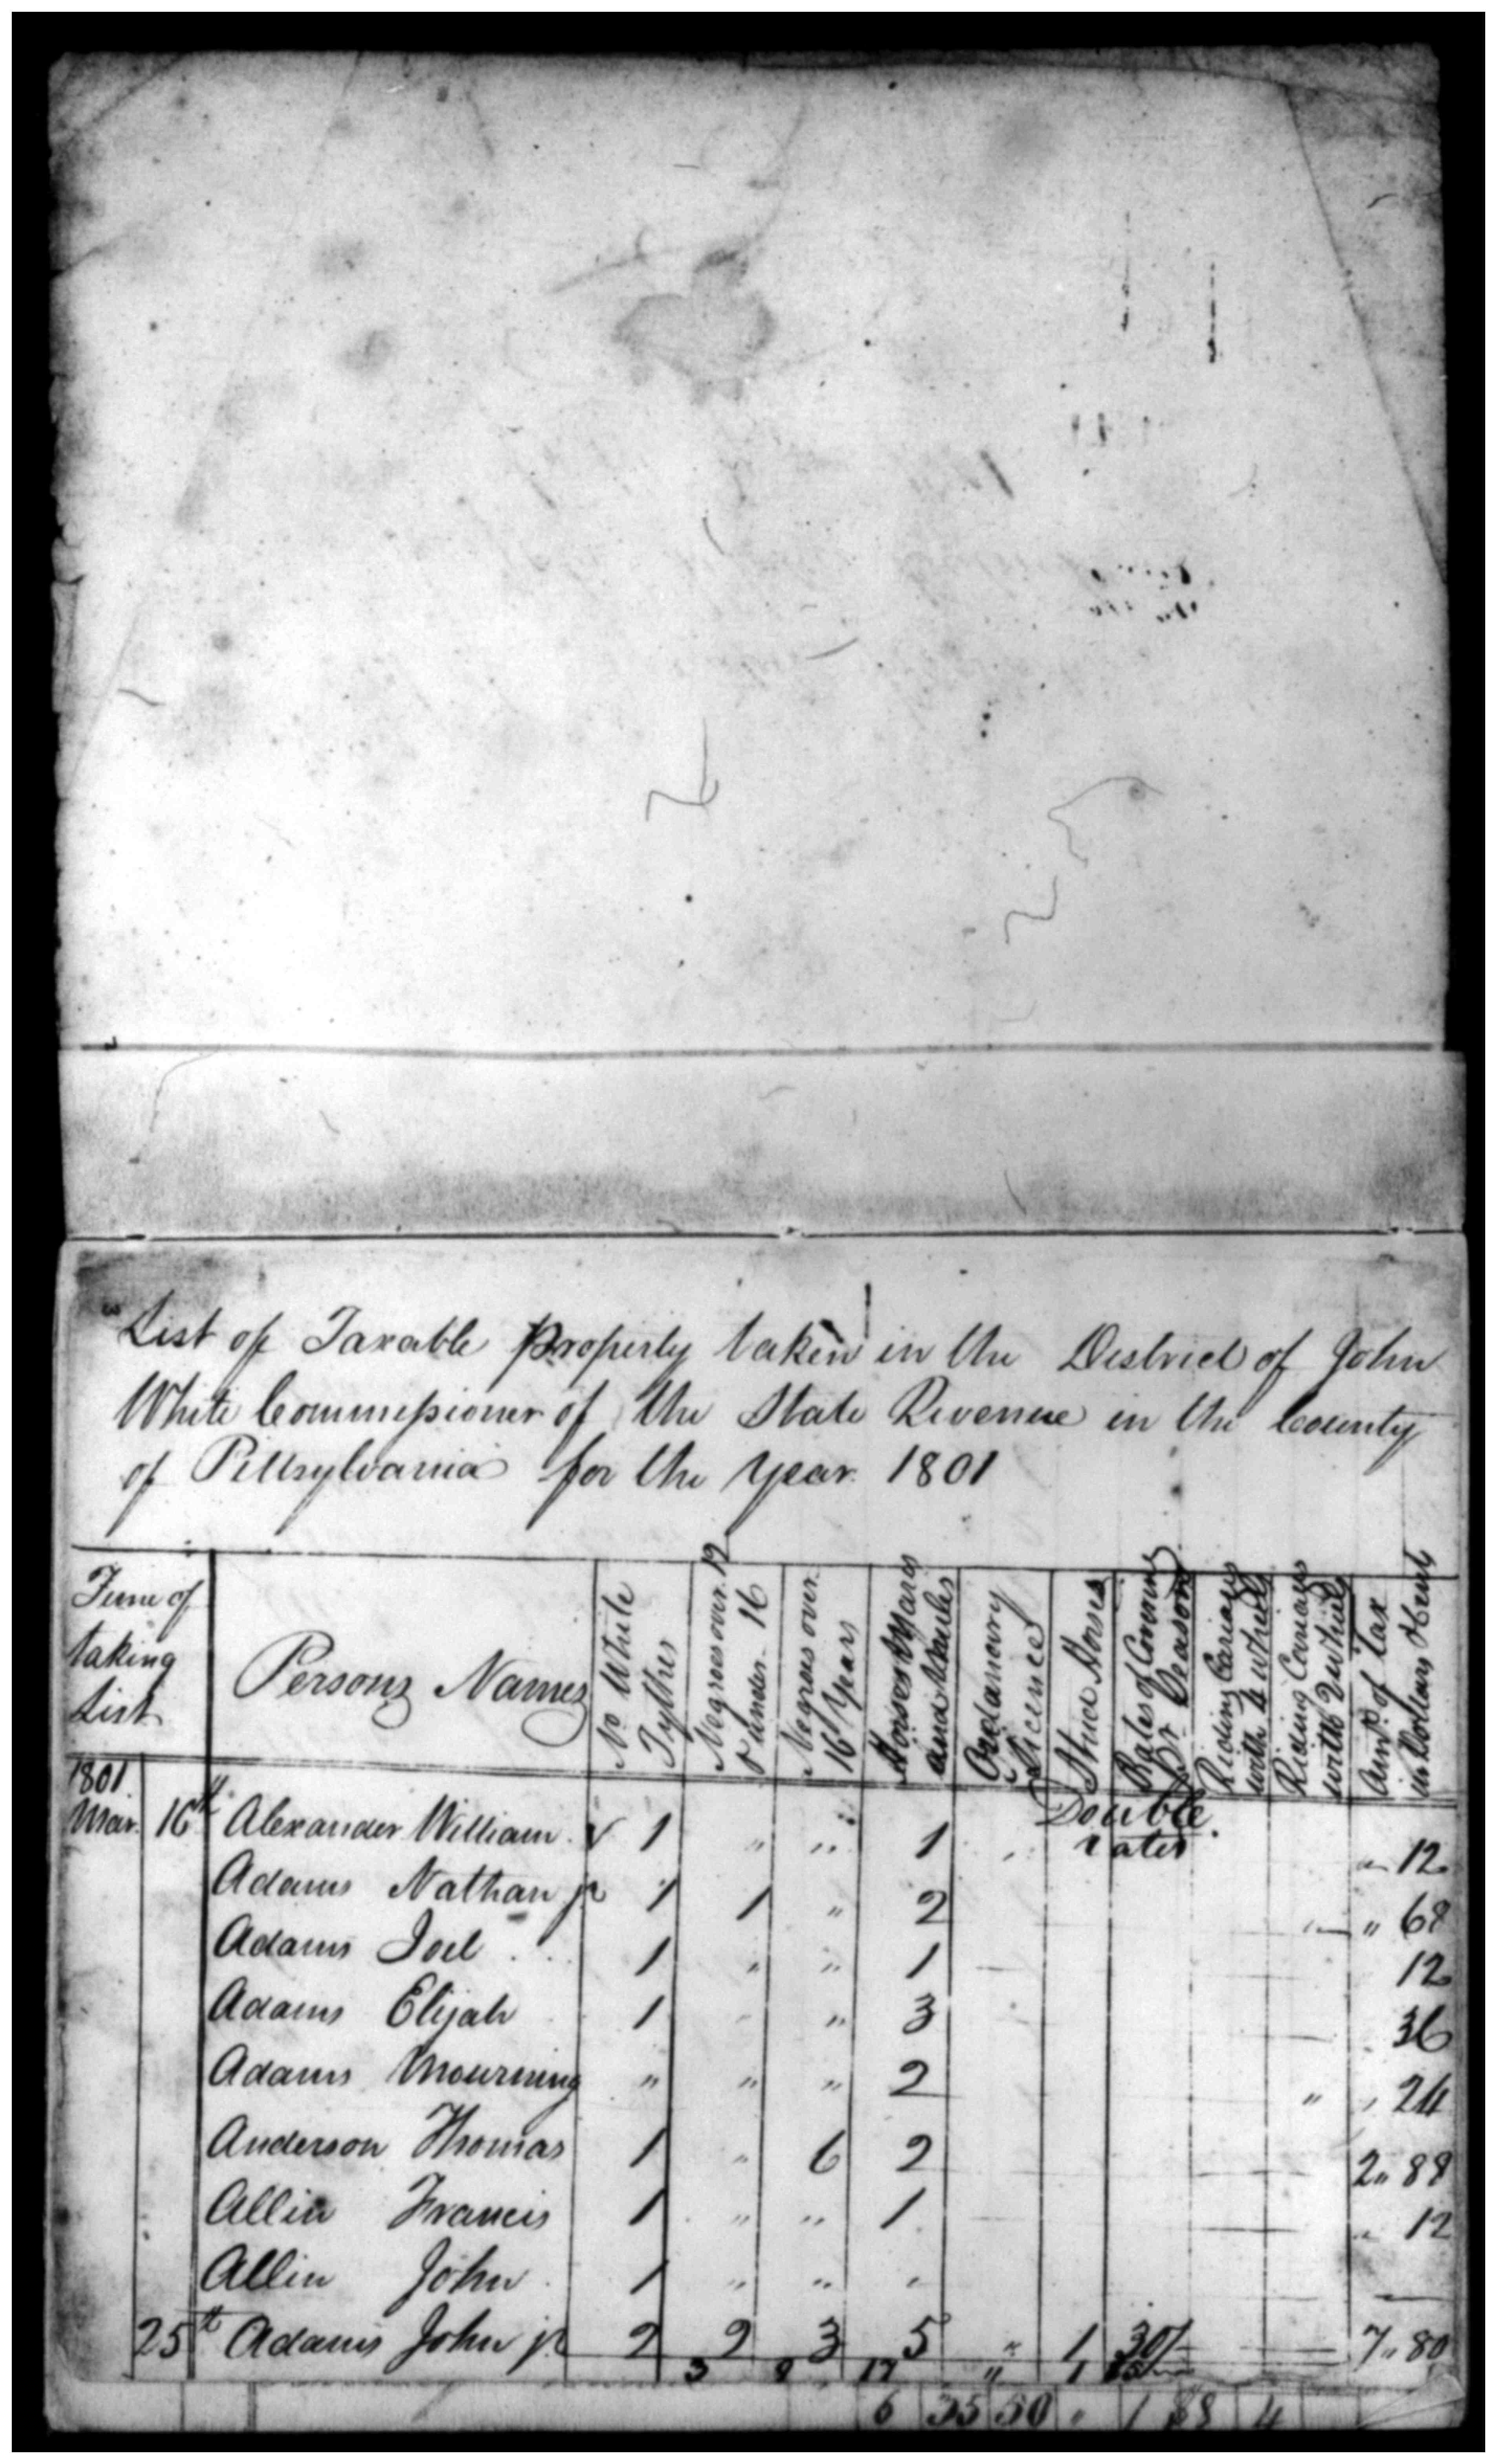 List of Taxable property taken in the District of John
White Commissioner of the State Revenue in the County
of Pittsylvania for the year 1801
Time of taking List
Persons Names
No White Tythes
Negroes over 12 & under 16
Negroes over 16 Years
Horses Mares and Mules
Ordanary Licence
Stud Horses
Rates of Covering Pr Season
Riding Cariages with 4 Wheels
Riding Cariages with 2 Wheels
Amt. of Tax in Dollars & Cents
1801
Mar. 16th Alexander William 1 " " 1 Double rates 12
Adams Nathan jr 1 1 " 2 " 68
Adams Joel 1 " " 1 12
Adams Elijah 1 " 3 36
Adams Mourning " " " 2 " 24
Anderson Thomas 1 " 6 2 2 " 88
Allin Francis 1 " " 1 " 12
Allin John 1 " " "
25th Adams John jr 2 2 3 5 " 1 30/ 7 " 80
3 9 17 " 1
6 35 50 " 1 88 4